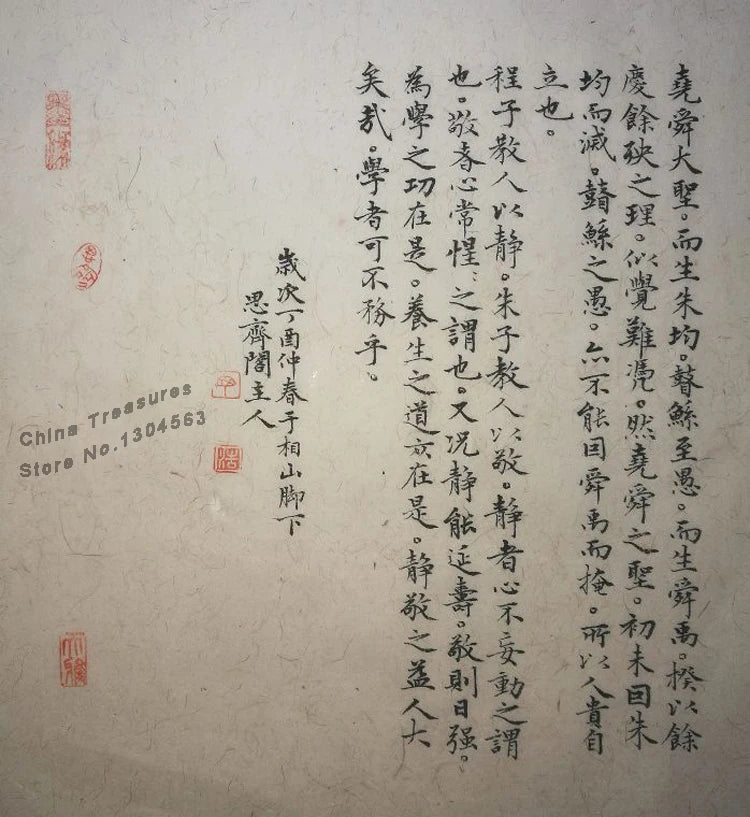 堯舜大聖。而生朱均。瞽鯀至愚。而生舜禹。揆以餘
慶餘殃之理。似覺難憑。然堯舜之聖。初未因朱
均而滅。瞽鯀之愚。亦不能因舜禹而掩。所以人貴自
立也。
程子教人以静。朱子教人以敬。静者心不妄動之謂
也。敬者心常惺〻之謂也。又况静能延壽。敬則日强。
為學之功在是。養生之道亦在是。静敬之益人大
矣哉。學者可不務乎。
歲次丁酉仲春于相山脚下
思齊閣主人
China Treasures
Store No.1304563